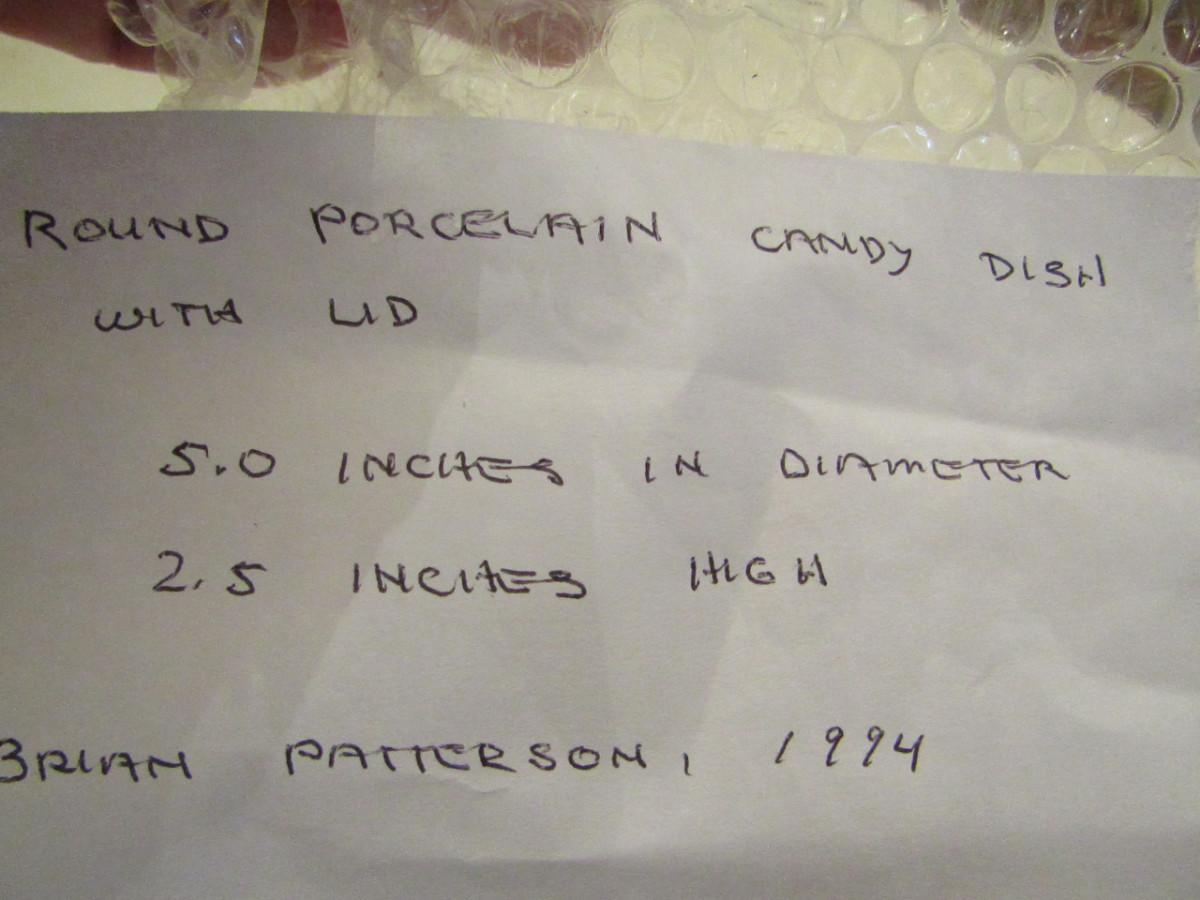 ROUND PORCELAIN CANDY DISH
WITH LID
5.0 INCHES IN DIAMETER
2.5 INCHES HIGH
BRIAN PATTERSON, 1994